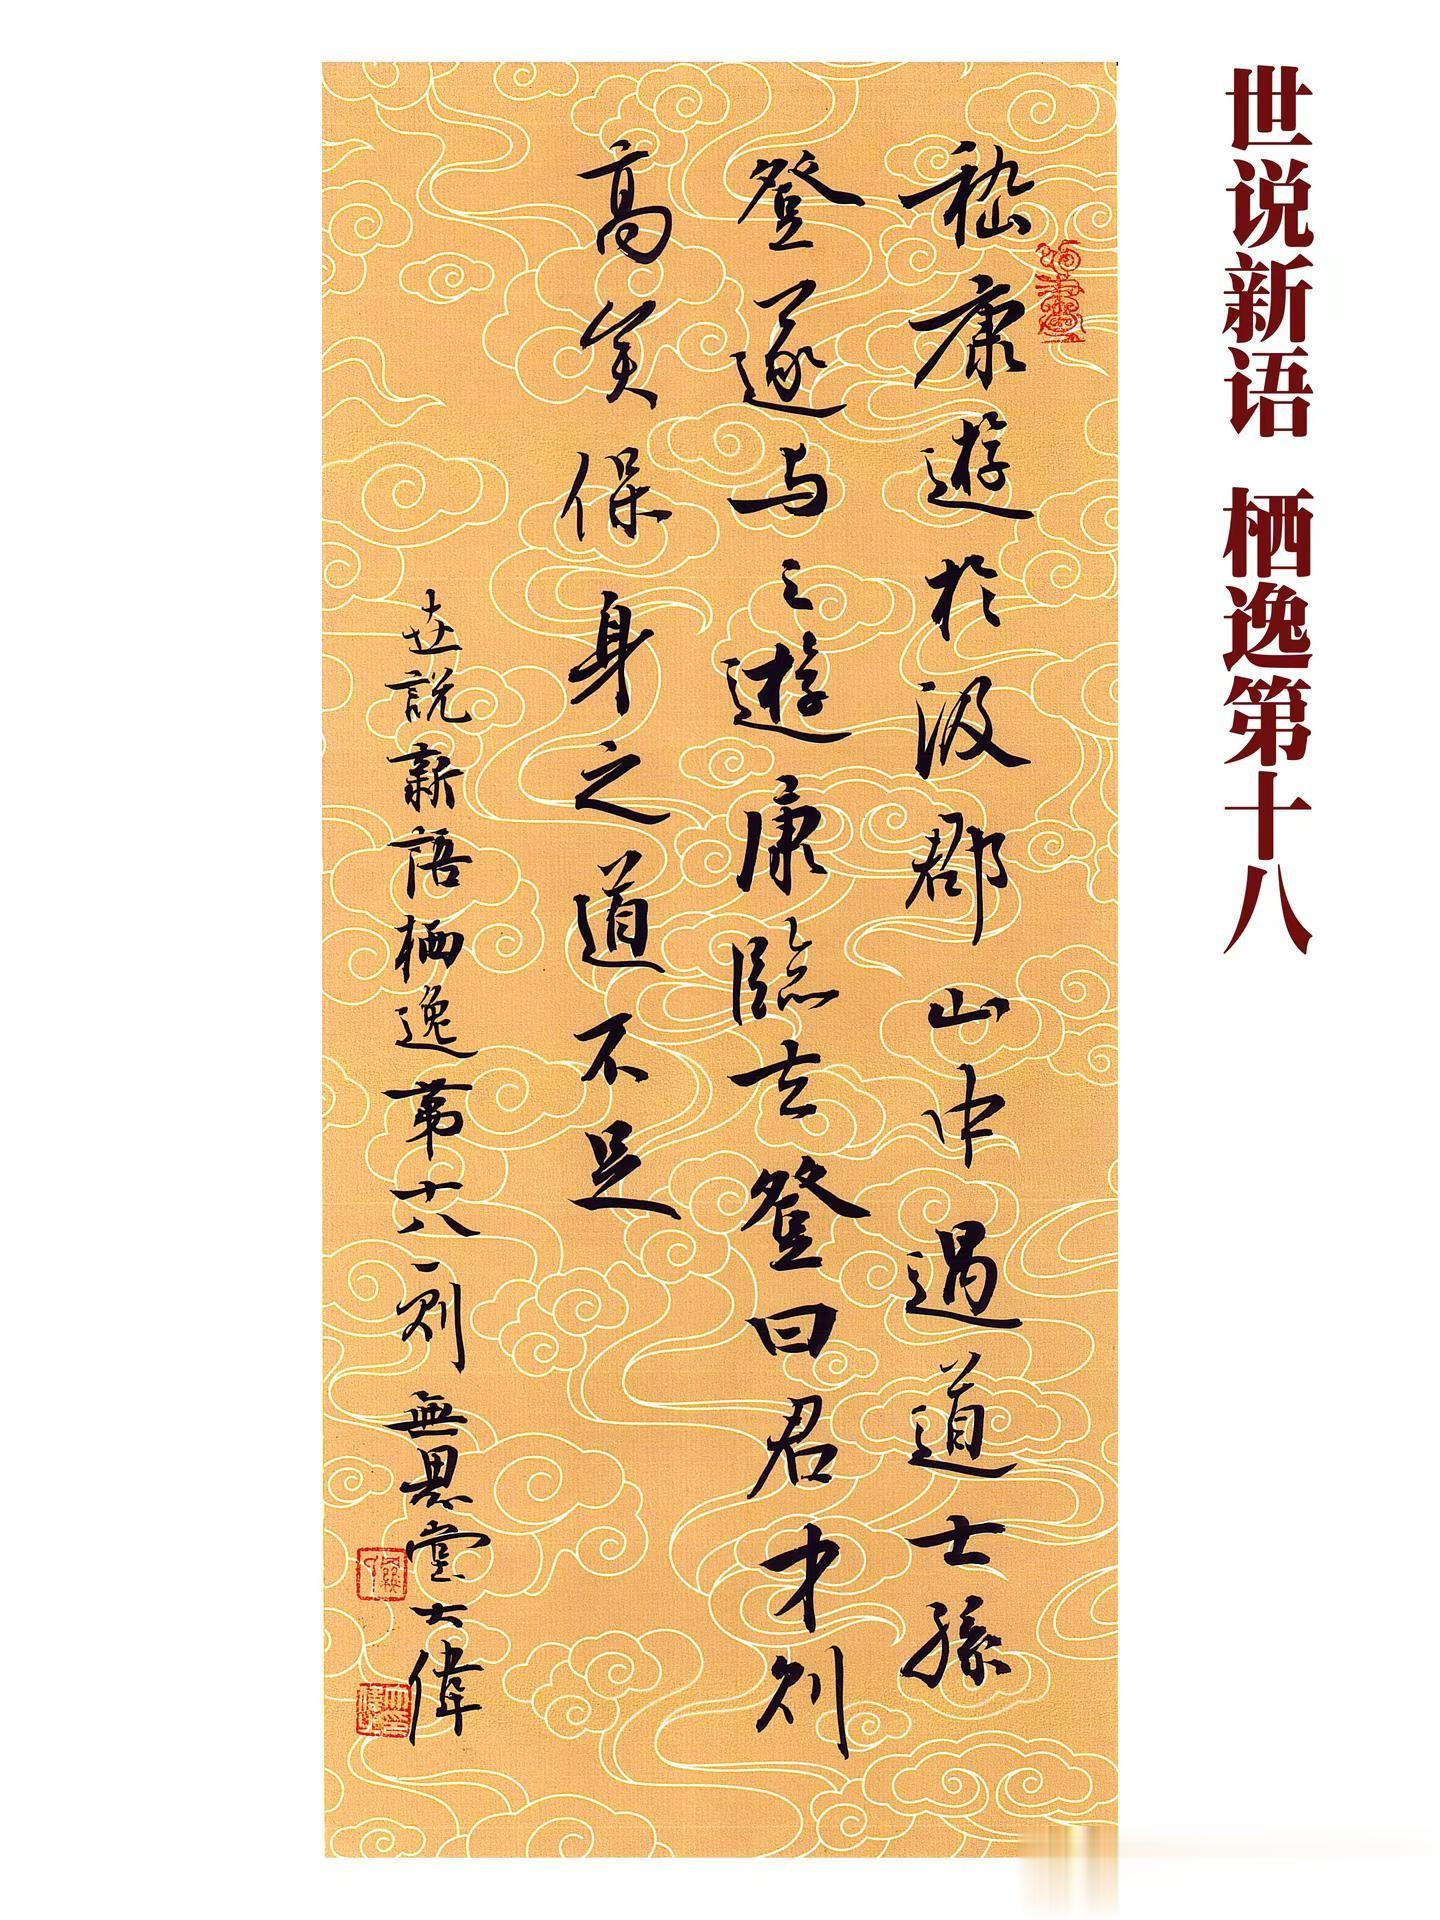 世说新语 栖逸第十八
嵇康遊於汲郡山中遇道士孫
登遂与之遊康臨去登曰君才則
高矣保身之道不足
世説新語栖逸第十八一則 無思堂大偉